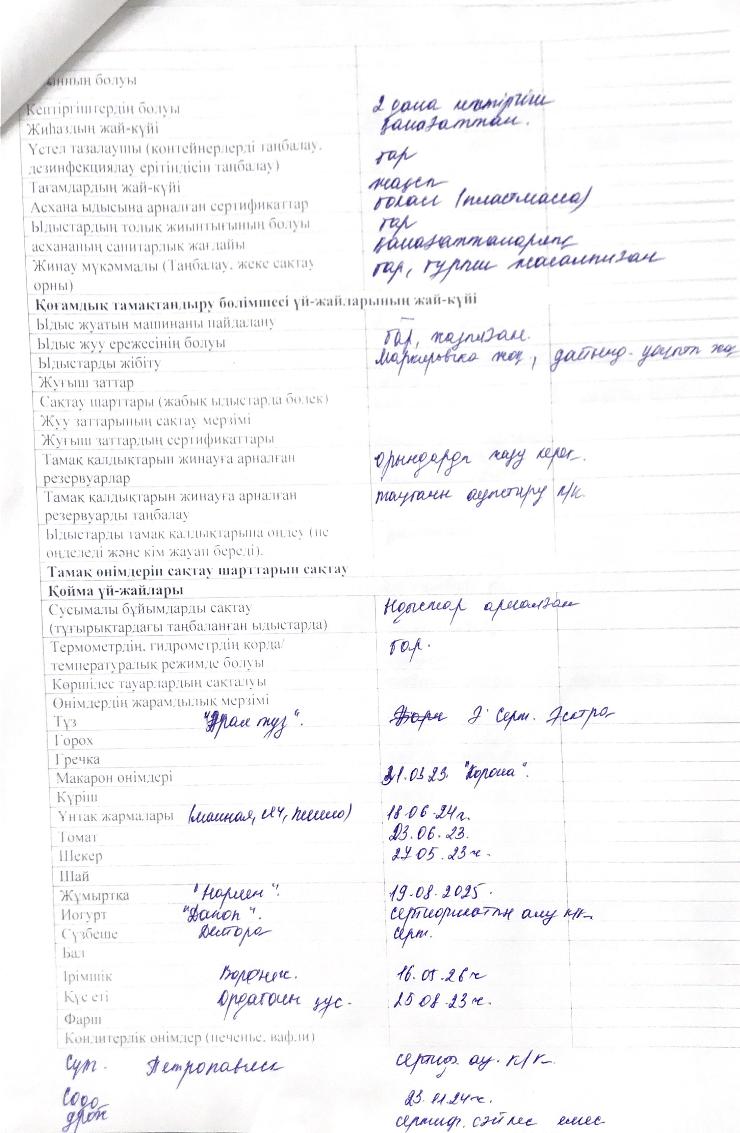 болуы
Кептіргіштердің болуы 2 дана кептіргіш
Жиһаздың жай-күйі қанағаттан.
Үстел тазалаушы (контейнерлерді таңбалау,
дезинфекциялау ерітіндісін таңбалау) бар
Тағамдардың жай-күйі жақсы
Асхана ыдысына арналған сертификаттар (пластмасса)
Ыдыстардың толық жиынтығының болуы бар
асхананың санитарлық жағдайы қанағаттанарлық
Жинау мүкәммалы (Таңбалау, жеке сақтау бар, дұрыс
орны)
Қоғамдық тамақтандыру бөлімшесі үй-жайларының жай-күйі
Ыдыс жуатын машинаны пайдалану
Ыдыс жуу ережесінің болуы бар, жазылған.
Ыдыстарды жібіту Маркировка жоқ, дайынд. уақыты жоқ
Жуғыш заттар
Сақтау шарттары (жабық ыдыстарда бөлек)
Жуу заттарының сақтау мерзімі
Жуғыш заттардың сертификаттары
Тамақ қалдықтарын жинауға арналған орындарды жазу керек.
резервуарлар
Тамақ қалдықтарын жинауға арналған ауыстыру к/к.
резервуарды таңбалау
Ыдыстарды тамақ қалдықтарына өңдеу (не
өңделеді және кім жауап береді).
Тамақ өнімдерін сақтау шарттарын сақтау
Қойма үй-жайлары
Сусымалы бұйымдарды сақтау Ыдыстар арналған
(тұғырықтардағы таңбаланған ыдыстарда)
Термометрдің, гидрометрдің қорда/ бар.
температуралық режимде болуы
Көршілес тауарлардың сақталуы
Өнімдердің жарамдылық мерзімі
Тұз "Арал тұз". Серт.
Горох
Гречка
Макарон өнімдері 21.03.23 "Корона".
Күріш
Ұнтақ жармалары (манная, пшено) 18.06.24г.
Томат 03.06.23.
Шекер 27.05.23ж.
Шай
Жұмыртқа 19.08.2025.
Йогурт сертификатын алу к/к
Сүзбеше серт.
Бал
Ірімшік Воронеж. 16.05.26ж
Құс еті құс. 25.08.23ж.
Фарш
Кондитерлік өнімдер (печенье, вафли)
Сүт. Петропавлск сертиф. ау. к/к.
Сода 23.11.24ж.
дрож сертиф. сәйкес емес